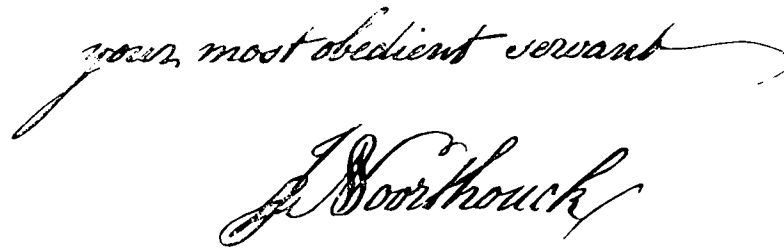 your most obedient servant
J Noorthouck